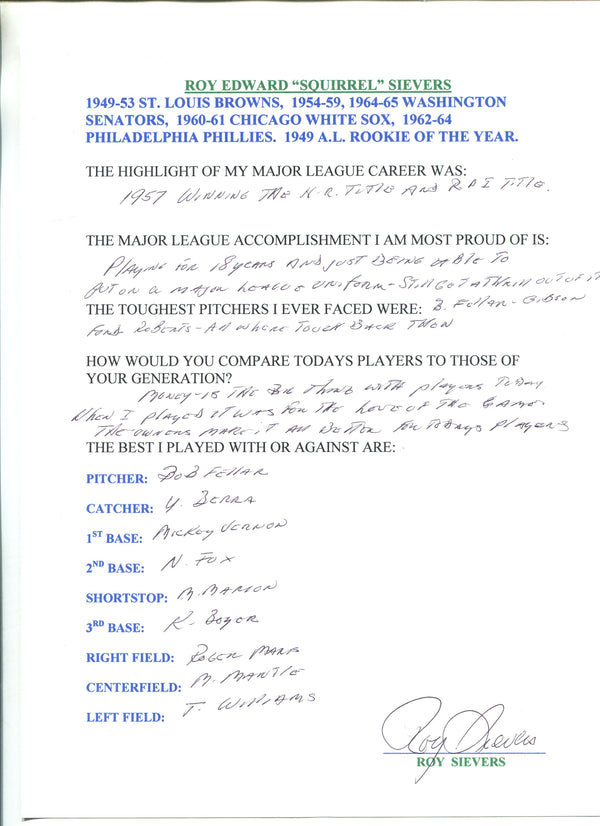 ROY EDWARD “SQUIRREL” SIEVERS
1949-53 ST. LOUIS BROWNS, 1954-59, 1964-65 WASHINGTON
SENATORS, 1960-61 CHICAGO WHITE SOX, 1962-64
PHILADELPHIA PHILLIES. 1949 A.L. ROOKIE OF THE YEAR.
THE HIGHLIGHT OF MY MAJOR LEAGUE CAREER WAS:
1957 WINNING THE H.R. TITLE AND RBI TITLE.
THE MAJOR LEAGUE ACCOMPLISHMENT I AM MOST PROUD OF IS:
PLAYING FOR 18 YEARS AND JUST BEING ABLE TO
PUT ON A MAJOR LEAGUE UNIFORM - STILL GOT A THRILL OUT OF IT
THE TOUGHEST PITCHERS I EVER FACED WERE: B. FELLAR - GIBSON
FORD ROBERTS - ALL WHERE TOUGH BACK THEN
HOW WOULD YOU COMPARE TODAYS PLAYERS TO THOSE OF
YOUR GENERATION?
MONEY - IS THE BIG THING WITH PLAYERS TODAY
WHEN I PLAYED IT WAS FOR THE LOVE OF THE GAME.
THE OWNERS MAKE IT ALL BETTER FOR TODAYS PLAYERS
THE BEST I PLAYED WITH OR AGAINST ARE:
PITCHER: BOB FELLAR
CATCHER: Y. BERRA
1ST BASE: MICKEY VERNON
2ND BASE: N. FOX
SHORTSTOP: M. MARION
3RD BASE: K. BOYER
RIGHT FIELD: ROGER MARIS
CENTERFIELD: M. MANTLE
LEFT FIELD: T. WILLIAMS
Roy Sievers
ROY SIEVERS